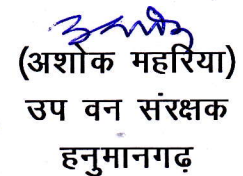 (अशोक महरिया)
उप वन संरक्षक
हनुमानगढ़